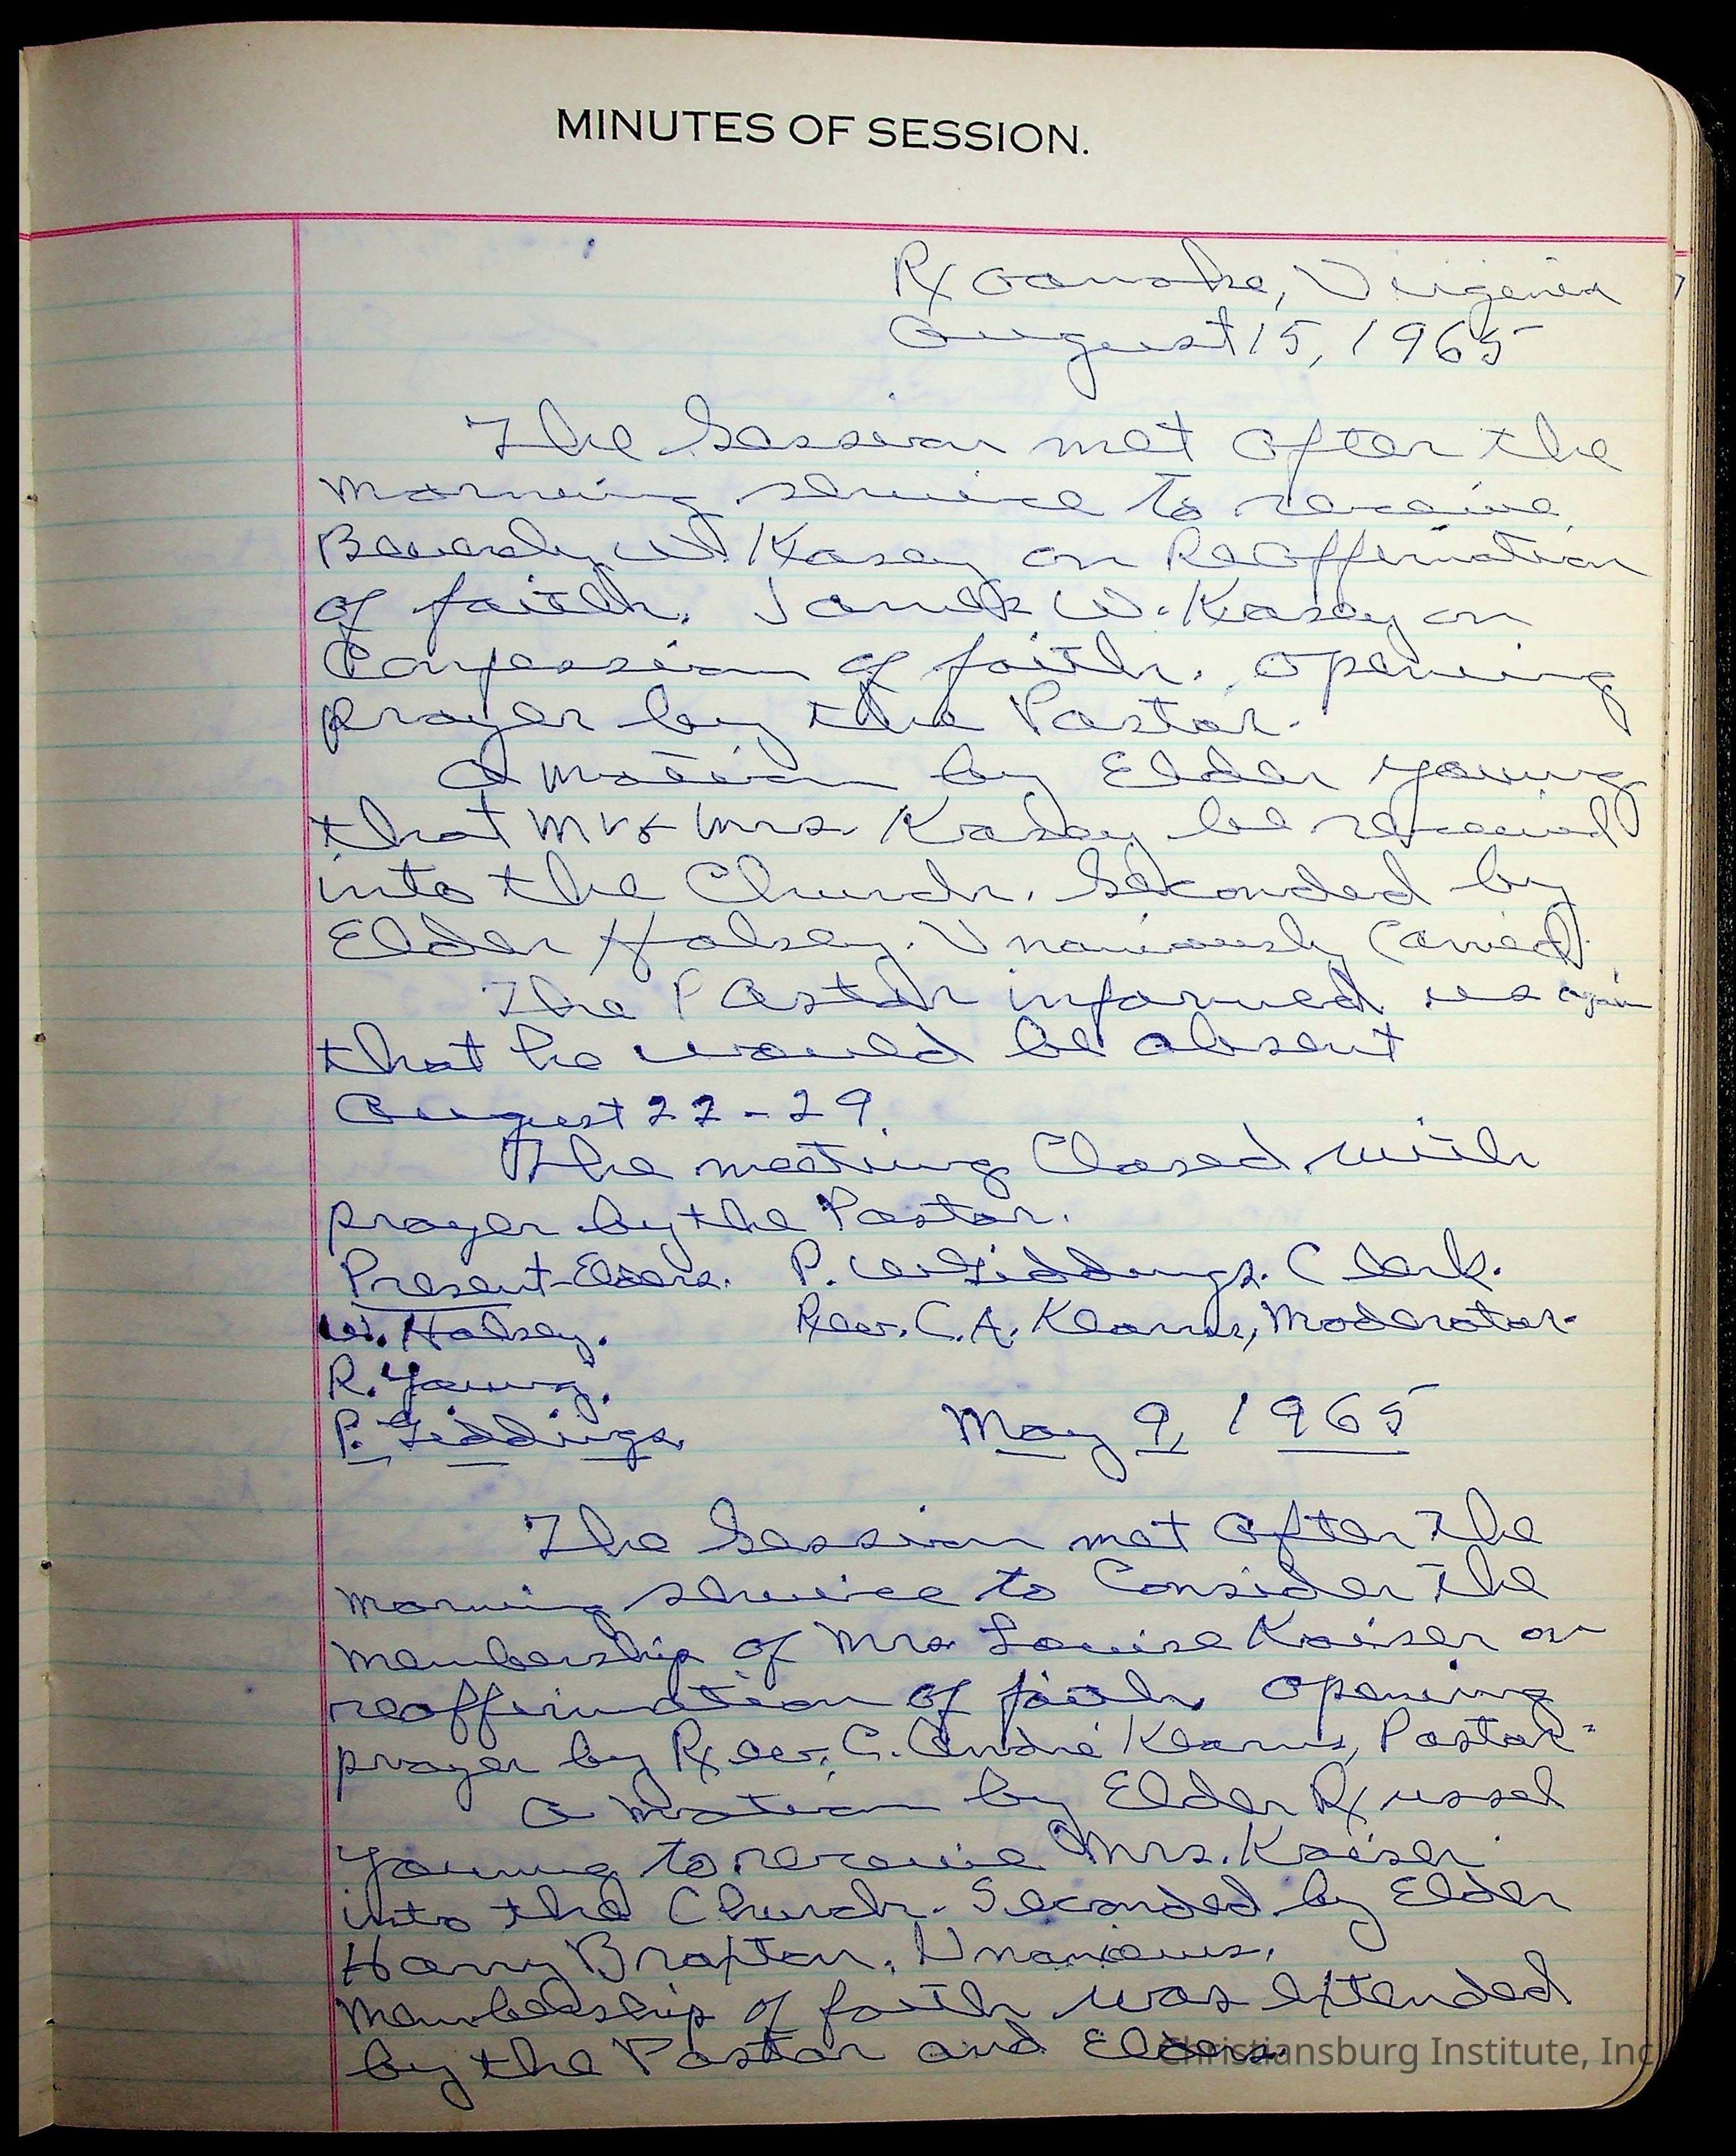 MINUTES OF SESSION.
Roanoke, Virginia
August 15, 1965
The Session met after the
morning service to receive
Beverly W. Kasey on Reaffirmation
of faith. Janet W. Kasey on
Confession of faith. Opening
prayer by the Pastor.
A motion by Elder Young
that Mr & Mrs. Kasey be received
into the Church. Seconded by
Elder Halsey. Unaniously Carried.
The Pastor informed us again
that he would be absent
August 22-29.
The meeting Closed with
prayer by the Pastor.
Present-Elders. P. W. Giddings. Clerk.
W. Halsey. Rev. C. A. Kearns, Moderator.
R. Young.
P. Giddings.
May 9, 1965
The Session met after the
morning service to Consider the
membership of Mrs Louise Kaiser on
reaffirmation of faith. Opening
prayer by Rev. C. Andre' Kearns, Pastor.
A motion by Elder Russel
Young to receive Mrs. Kaiser
into the Church. Seconded by Elder
Harry Braxton.
Membership of faith was extended
by the Pastor and Elders.
Christiansburg Institute, Inc